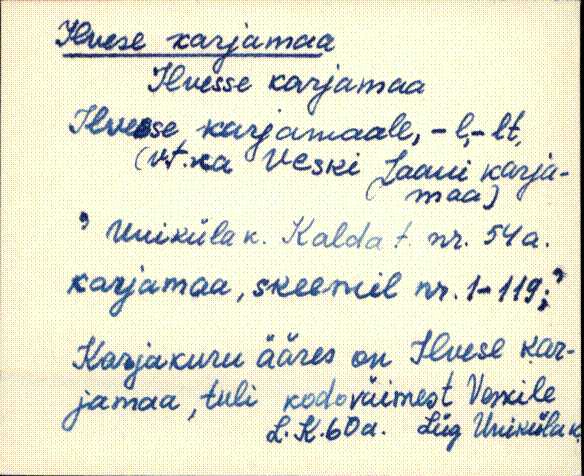 Ilvese karjamaa
Ilvesse karjamaa
Ilvesse karjamaale, -l, -lt,
(vt. ka Veski Jaani karja-
maa)
" Uniküla k. Kalda t. nr. 54a.
karjamaa, skeemil nr. 1-119;"
Karjakuru ääres on Ilvese kar-
jamaa, tuli kodoväimest
L.K. 60a. Lüg Uniküla k.